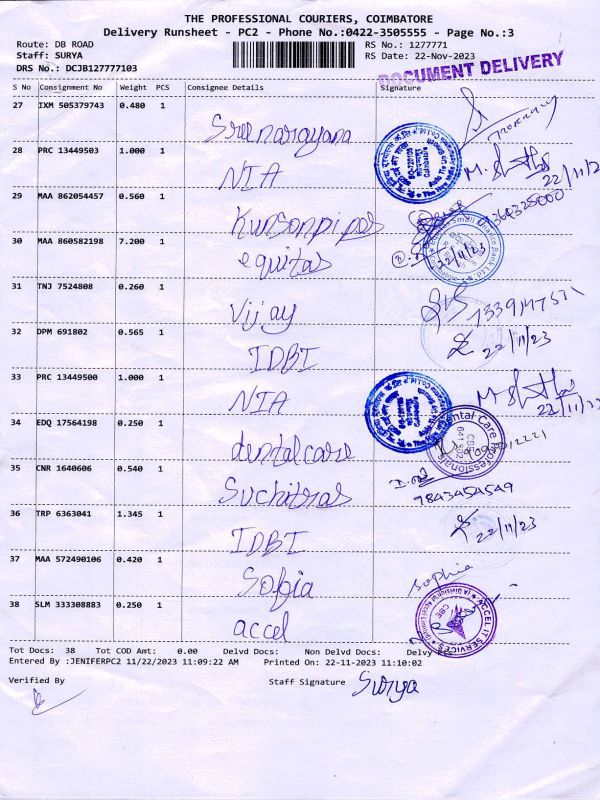 THE PROFESSIONAL COURIERS, COIMBATORE
Delivery Runsheet - PC2 - Phone No.:0422-3505555 - Page No.:3
Route: DB ROAD RS No.: 1277771
Staff: SURYA RS Date: 22-Nov-2023
DRS No.: DCJB127777103
DOCUMENT DELIVERY
S No Consignment No Weight PCS Consignee Details Signature
27 IXM 505379743 0.480 1
Sreenarayana
28 PRC 13449503 1.000 1
NIA
22/11/2
29 MAA 862054457 0.560 1
Kunsonpipes
30 MAA 860582198 7.200 1
equitas
22/11/23
31 TNJ 7524808 0.260 1
Vijay
32 DPM 691802 0.565 1
IDBI
22/11/23
33 PRC 13449500 1.000 1
NIA
22/11/2
34 EDQ 17564198 0.250 1
dentalcare
Dental Care Professionals
35 CNR 1640606 0.540 1
Suchitras
9843454549
36 TRP 6363041 1.345 1
IDBI
22/11/23
37 MAA 572490106 0.420 1
Sofia
Sophia
38 SLM 333308883 0.250 1
accel
ACCEL IT SERVICES
CBE
Tot Docs: 38 Tot COD Amt: 0.00 Delvd Docs: Non Delvd Docs: Delvy
Entered By :JENIFERPC2 11/22/2023 11:09:22 AM Printed On: 22-11-2023 11:10:02
Verified By Staff Signature Surya